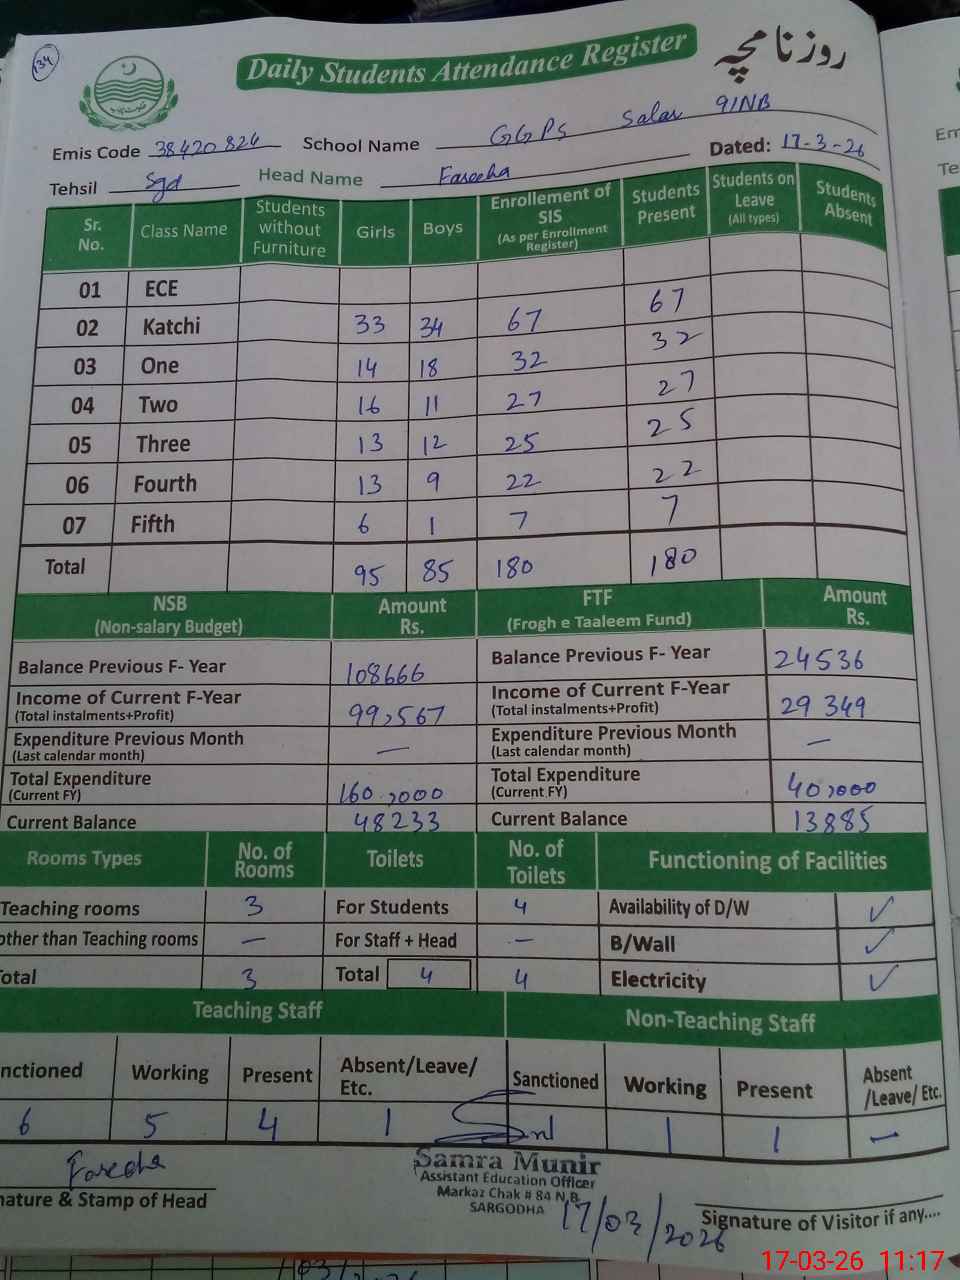 134
Daily Students Attendance Register
روزنامچہ
Emis Code 38420824 School Name GGPS Salar 91NB
Tehsil Sgd Head Name Fareeha Dated: 17-3-26
Sr. No. Class Name Students without Furniture Girls Boys Enrollement of SIS (As per Enrollment Register) Students Present Students on Leave (All types) Students Absent
01 ECE
02 Katchi 33 34 67 67
03 One 14 18 32 32
04 Two 16 11 27 27
05 Three 13 12 25 25
06 Fourth 13 9 22 22
07 Fifth 6 1 7 7
Total 95 85 180 180
NSB (Non-salary Budget) Amount Rs. FTF (Frogh e Taaleem Fund) Amount Rs.
Balance Previous F- Year 108666 Balance Previous F- Year 24536
Income of Current F-Year (Total instalments+Profit) 99,567 Income of Current F-Year (Total instalments+Profit) 29349
Expenditure Previous Month (Last calendar month) — Expenditure Previous Month (Last calendar month) —
Total Expenditure (Current FY) 160,000 Total Expenditure (Current FY) 40,000
Current Balance 48233 Current Balance 13885
Rooms Types No. of Rooms Toilets No. of Toilets Functioning of Facilities
Teaching rooms 3 For Students 4 Availability of D/W ✓
other than Teaching rooms — For Staff + Head — B/Wall ✓
otal 3 Total 4 4 Electricity ✓
Teaching Staff Non-Teaching Staff
nctioned Working Present Absent/Leave/ Etc. Sanctioned Working Present Absent /Leave/ Etc.
6 5 4 1 1 1 —
Fareeha
nature & Stamp of Head
Samra Munir
Assistant Education Officer
Markaz Chak # 84 N.B
SARGODHA
17/03/2026
Signature of Visitor if any....
17-03-26 11:17